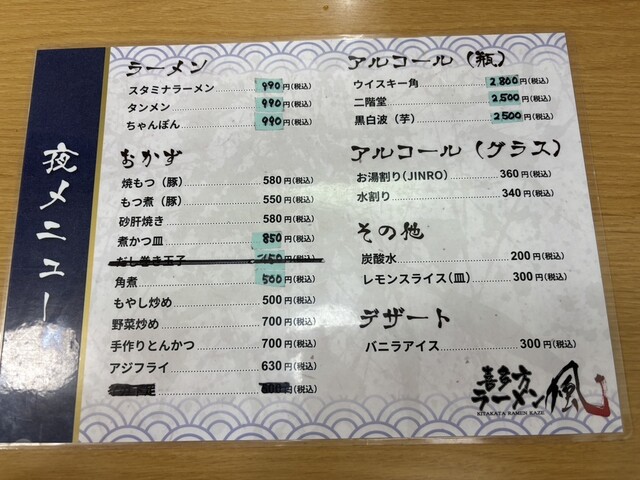 夜メニュー
ラーメン
スタミナラーメン 990円(税込)
タンメン 990円(税込)
ちゃんぽん 990円(税込)
おかず
焼もつ（豚） 580円(税込)
もつ煮（豚） 550円(税込)
砂肝焼き 580円(税込)
煮かつ皿 850円(税込)
だし巻き玉子 450円(税込)
角煮 500円(税込)
もやし炒め 500円(税込)
野菜炒め 700円(税込)
手作りとんかつ 700円(税込)
アジフライ 630円(税込)
600円(税込)
アルコール（瓶）
ウイスキー角 2.800円(税込)
二階堂 2.500円(税込)
黒白波（芋） 2500円(税込)
アルコール（グラス）
お湯割り(JINRO) 360円(税込)
水割り 340円(税込)
その他
炭酸水 200円(税込)
レモンスライス(皿) 300円(税込)
デザート
バニラアイス 300円(税込)
喜多方
ラーメン 風
KITAKATA RAMEN KAZE